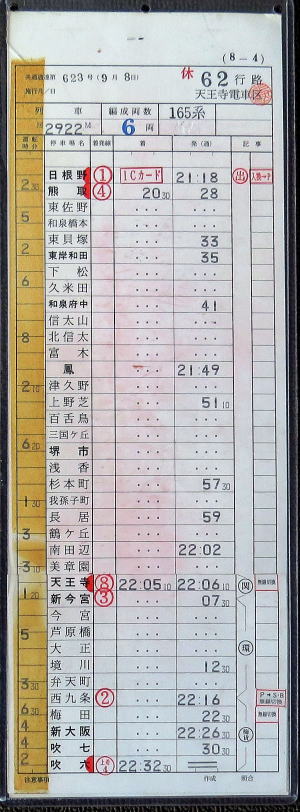 (8-4)
共通設達第623号(9月8日)
休 62行路
施行月/日
天王寺電車区
列車 編成両数 165系
2922M 6両
運転時分 停車場名 着発線 着 発(通) 記事
日根野 ① ICカード 21:18 出 入換→P
2 30 熊取 ④ 20 30 28
5 東佐野 ... ...
和泉橋本 ... ...
東貝塚 ... 33
2 東岸和田 ... 35
下松 ... ...
6 久米田 ... ...
和泉府中 ... 41
信太山 ... ...
8 北信太 ... ...
富木 ... ...
鳳 ... 21:49
2 10 津久野 ... ...
上野芝 ... 51 10
百舌鳥 ... ...
三国ケ丘 ... ...
6 20 堺市 ... ...
浅香 ... ...
杉本町 ... 57 30
1 30 我孫子町 ... ...
長居 ... 59
3 鶴ケ丘 ... ...
南田辺 ... 22:02
3 10 美章園 ... ...
天王寺 ⑧ 22:05 10 22:06 10 関 無線切換
1 20 新今宮 ③ ... 07 30
今宮 ... ...
5 芦原橋 ... ...
大正 ... ... 環
境川 ... 12 30
3 30 弁天町 ... ...
西九条 ② ... 22:16 P→S・B 無線切換
6 30 梅田 ... 22 30 無線切換
4 新大阪 ... 22:26 30
4 吹七 ... 30 30
2 吹六 22:32 30
注意事項 作成 照合